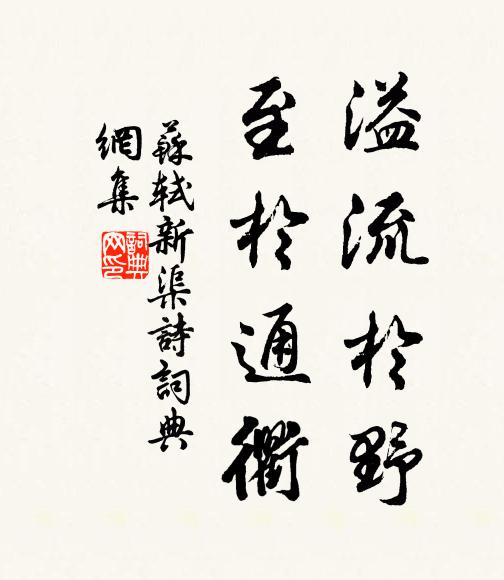 溢流於野
至於通衢
蘇軾新渠詩詞典
網集
詞典
网印